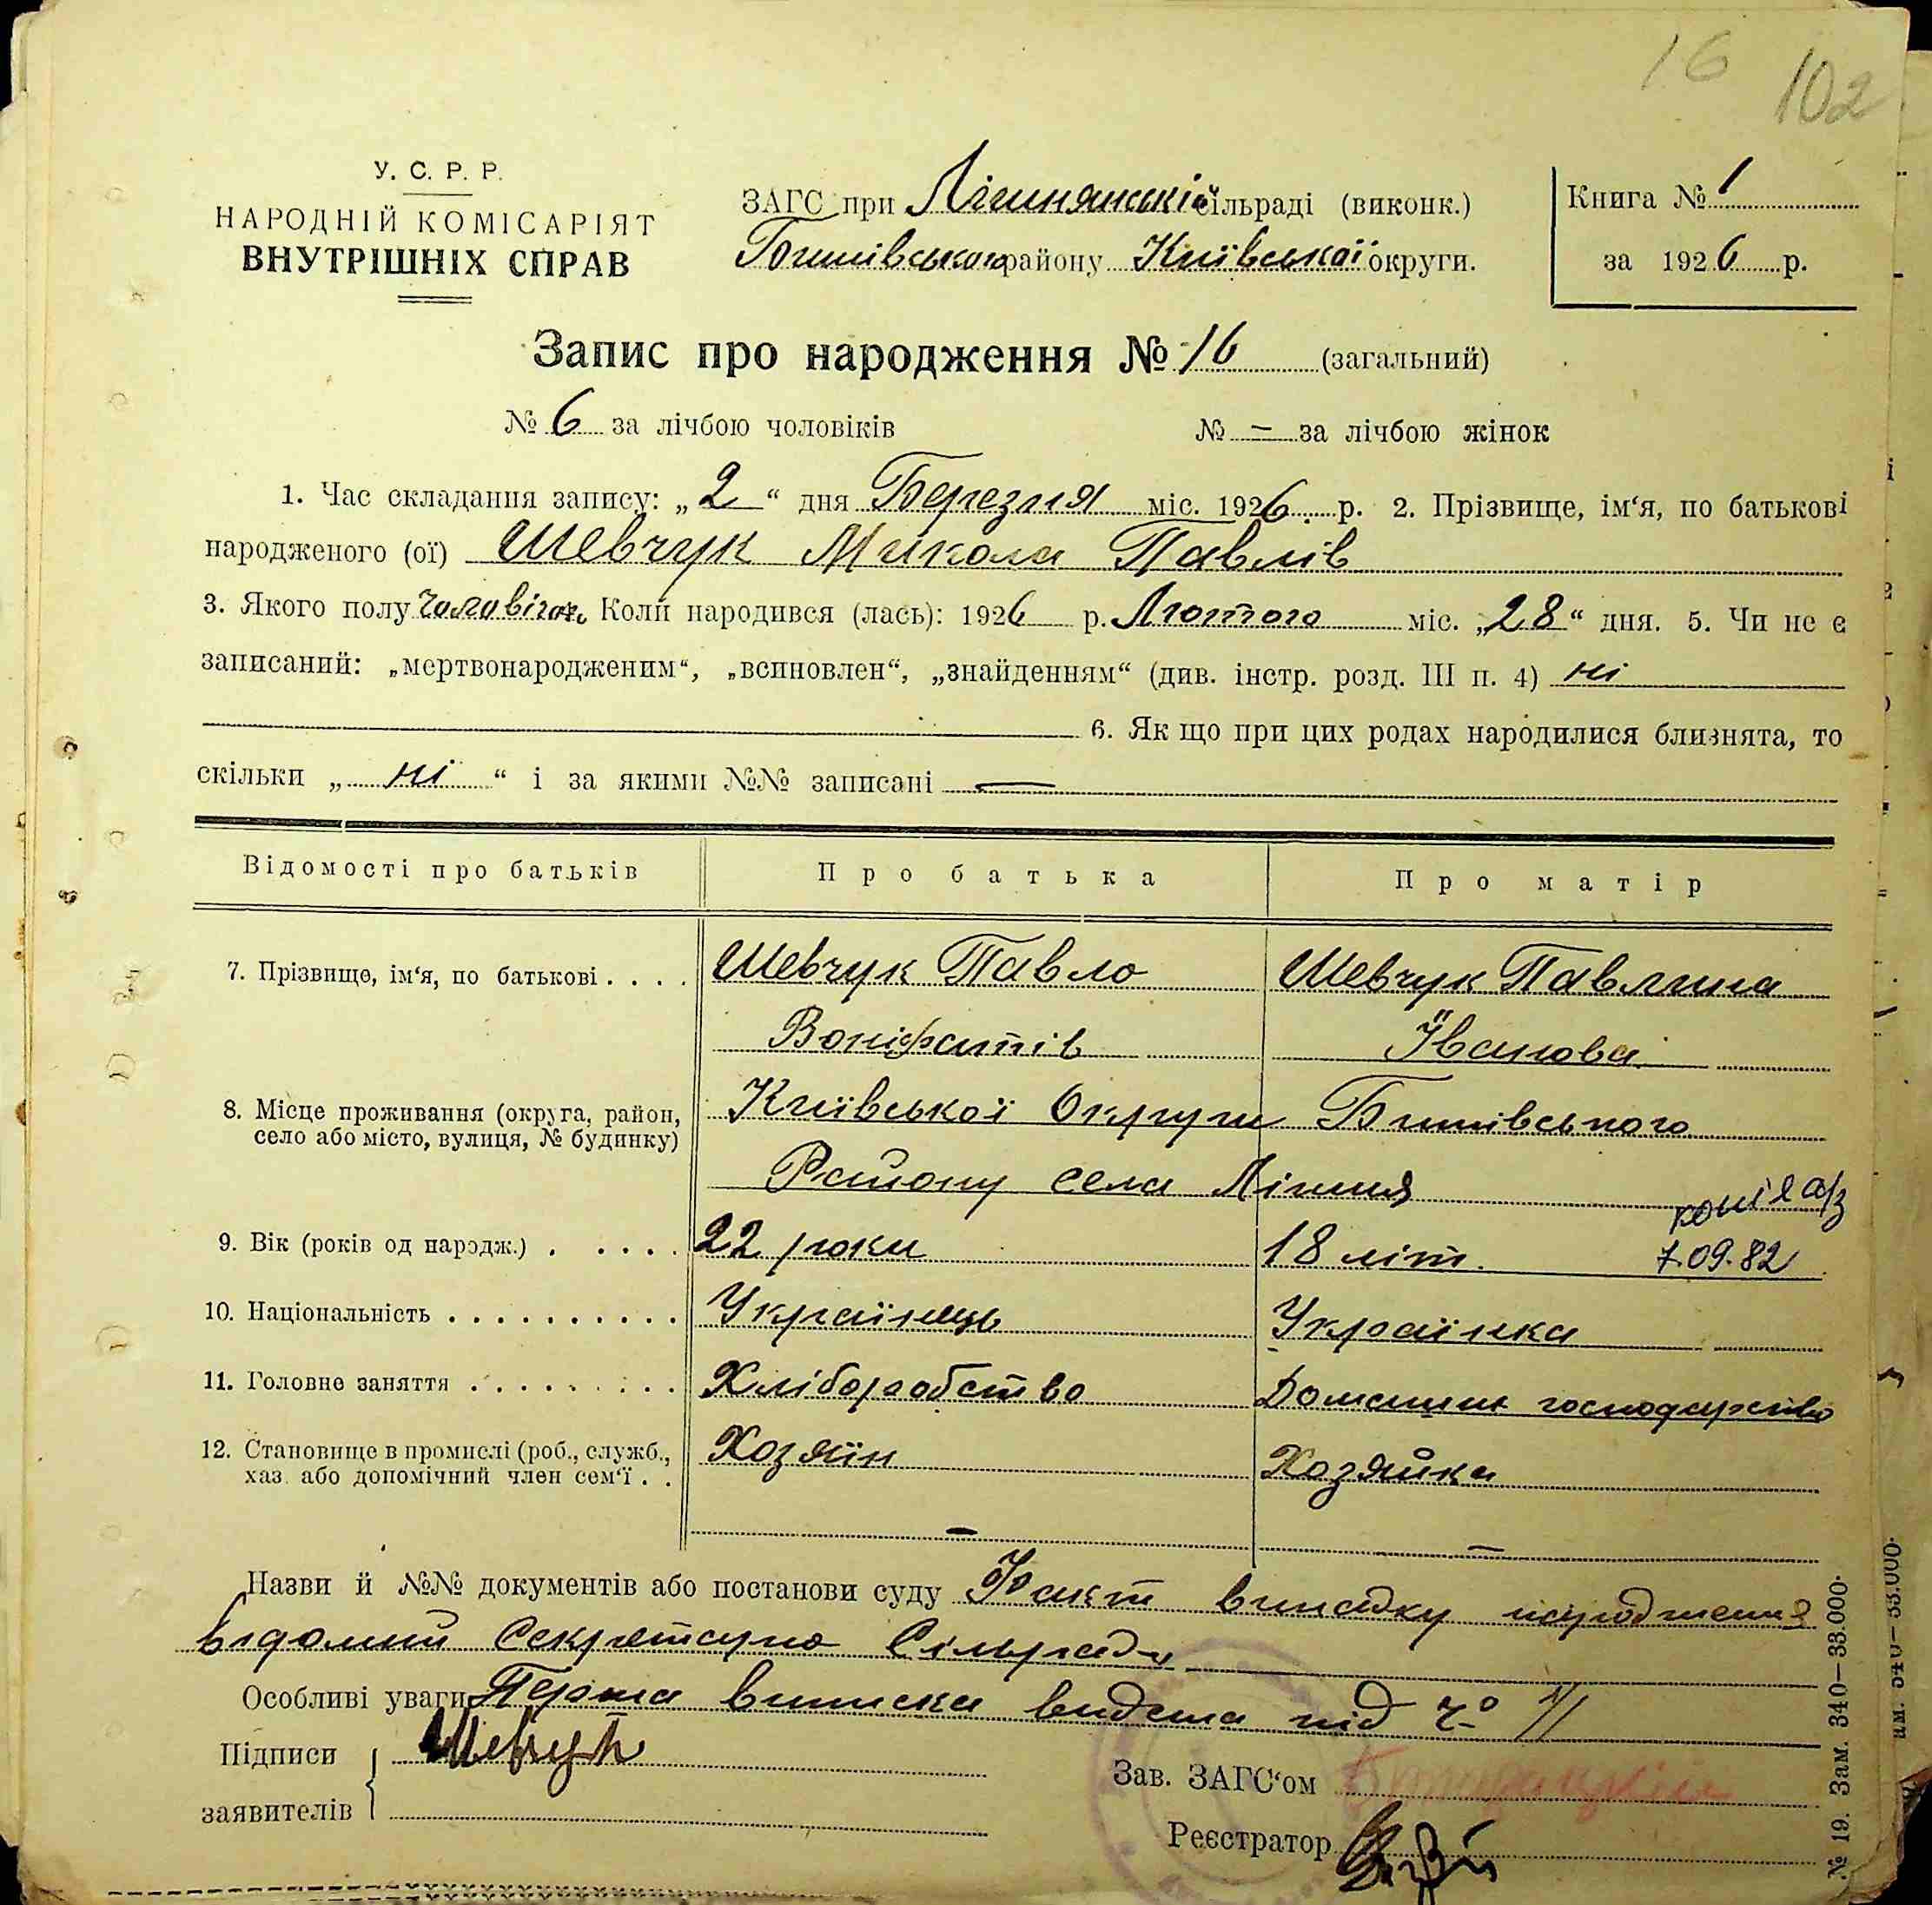 16 102
У. С. Р. Р.
НАРОДНІЙ КОМІСАРІЯТ
ВНУТРІШНІХ СПРАВ
ЗАГС при Лішнянській сільраді (виконк.)
Бишівського району Київської округи.
Книга № 1
за 1926 р.
Запис про народження № 16 (загальний)
№ 6 за лічбою чоловіків № — за лічбою жінок
1. Час складання запису: „2“ дня Березня міс. 1926 р. 2. Прізвище, ім‘я, по батькові
народженого (ої) Шевчук Микола Павлів
3. Якого полу Коли народився (лась): 1926 р. Лютого міс. „28“ дня. 5. Чи не є
записаний: „мертвонародженим“, „всиновлен“, „знайденням“ (див. інстр. розд. III п. 4) ні
6. Як що при цих родах народилися близнята, то
скільки „ні“ і за якими №№ записані —
Відомості про батьків Про батька Про матір
7. Прізвище, ім‘я, по батькові . . . . Шевчук Павло Шевчук Павлина
Воніфатів Іванова
8. Місце проживання (округа, район, Київської Округи Бишівського
село або місто, вулиця, № будинку)
Району села Лішня
копія а/з
9. Вік (років од народж.) . . . . . 22 роки 18 літ. 7.09.82
10. Національність . . . . . . . . . . Українець Українка
11. Головне заняття . . . . . . . . . Хліборобство Домашнє господарство
12. Становище в промислі (роб., служб., Хозяїн Хозяйка
хаз. або допомічний член сем‘ї . .
— —
Назви й №№ документів або постанови суду Факт випадку народження
відомий Секретарю Сільради
Особливі уваги Перша виписка видана під
Підписи Шевчук
заявителів
Зав. ЗАГС‘ом
Реєстратор
№ 19. Зам. 340—33.000.